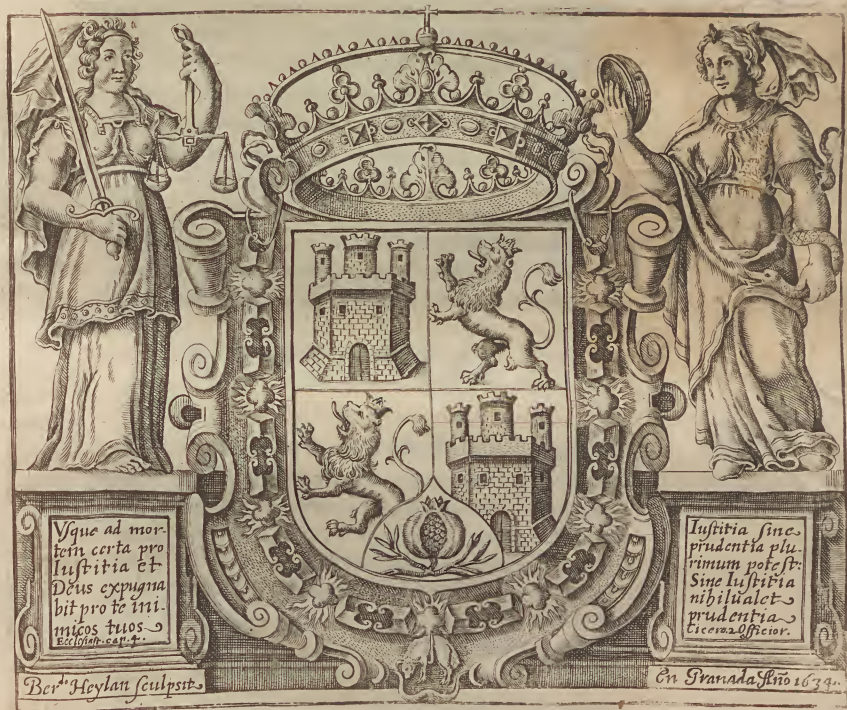 Vsque ad mor-
tem certa pro
Iustitia et
Deus expugna
bit pro te ini-
micos tuos
Ecclesiast. cap. 4.
Iustitia sine
prudentia plu-
rimum potest:
Sine Iustitia
nihil ualet
prudentia
Cicero. 2 Officior.
Ber.do Heylan sculpsit
En Granada Año 1634.